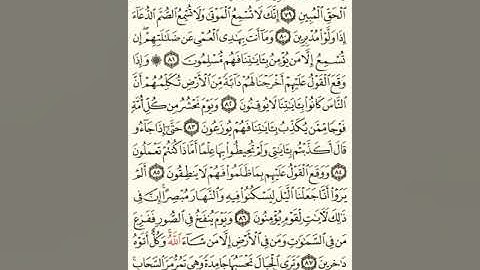 ٱلْحَقِّ ٱلْمُبِينِ ٧٩ إِنَّكَ لَا تُسْمِعُ ٱلْمَوْتَىٰ وَلَا تُسْمِعُ ٱلصُّمَّ ٱلدُّعَآءَ
إِذَا وَلَّوْا۟ مُدْبِرِينَ ٨٠ وَمَآ أَنتَ بِهَـٰدِى ٱلْعُمْىِ عَن ضَلَـٰلَتِهِمْ إِن
تُسْمِعُ إِلَّا مَن يُؤْمِنُ بِـَٔايَـٰتِنَا فَهُم مُّسْلِمُونَ ٨١ ۞ وَإِذَا
وَقَعَ ٱلْقَوْلُ عَلَيْهِمْ أَخْرَجْنَا لَهُمْ دَآبَّةً مِّنَ ٱلْأَرْضِ تُكَلِّمُهُمْ أَنَّ
ٱلنَّاسَ كَانُوا۟ بِـَٔايَـٰتِنَا لَا يُوقِنُونَ ٨٢ وَيَوْمَ نَحْشُرُ مِن كُلِّ أُمَّةٍ
فَوْجًا مِّمَّن يُكَذِّبُ بِـَٔايَـٰتِنَا فَهُمْ يُوزَعُونَ ٨٣ حَتَّىٰٓ إِذَا جَآءُو
قَالَ أَكَذَّبْتُم بِـَٔايَـٰتِى وَلَمْ تُحِيطُوا۟ بِهَا عِلْمًا أَمَّاذَا كُنتُمْ تَعْمَلُونَ
٨٤ وَوَقَعَ ٱلْقَوْلُ عَلَيْهِم بِمَا ظَلَمُوا۟ فَهُمْ لَا يَنطِقُونَ ٨٥ أَلَمْ
يَرَوْا۟ أَنَّا جَعَلْنَا ٱلَّيْلَ لِيَسْكُنُوا۟ فِيهِ وَٱلنَّهَارَ مُبْصِرًا إِنَّ فِى
ذَٰلِكَ لَـَٔايَـٰتٍ لِّقَوْمٍ يُؤْمِنُونَ ٨٦ وَيَوْمَ يُنفَخُ فِى ٱلصُّورِ فَفَزِعَ
مَن فِى ٱلسَّمَـٰوَٰتِ وَمَن فِى ٱلْأَرْضِ إِلَّا مَن شَآءَ ٱللَّهُ وَكُلٌّ أَتَوْهُ
دَٰخِرِينَ ٨٧ وَتَرَى ٱلْجِبَالَ تَحْسَبُهَا جَامِدَةً وَهِىَ تَمُرُّ مَرَّ ٱلسَّحَابِ